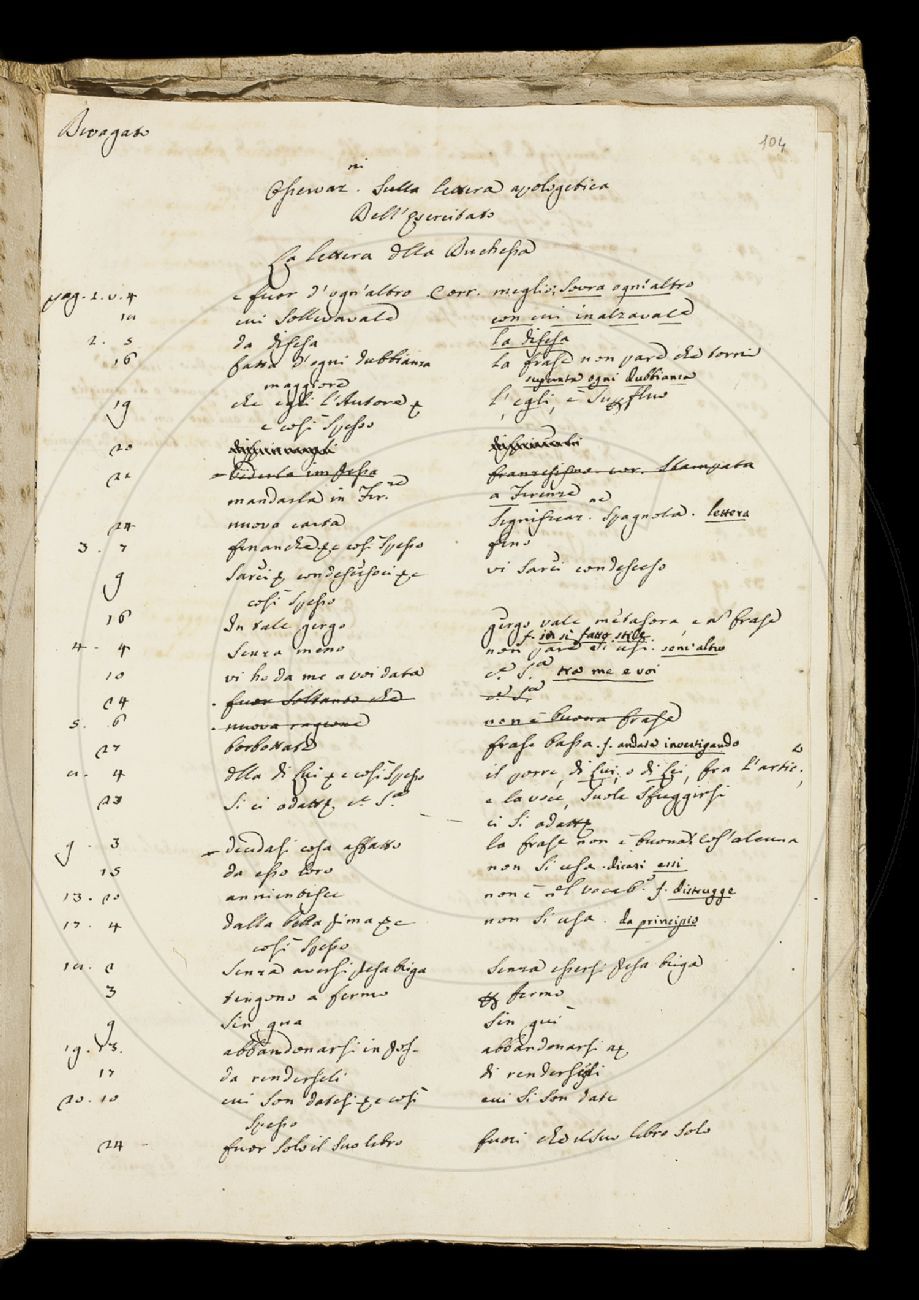 Divagato
104
Osservaz.ni Sulla lettera apologetica
Dell'Esercitato
La lettera della Duchessa
pag. 1. v. 4 e fuor d'ogni altro Corr. meglio: Sovra ogni altro
cui Sollevavate con cui inalzavate
2. 5 da difesa la difesa
16 fatta d'ogni dubbianza la frase non pare che torni
maggiore superata ogni dubbianza
19 che egli l'Autora l', egli, è Superfluo
e così Spesso
20
22 Vederla impressa francesismo. cor. Stampata
mandarla in Fir.ze a Firenze
24 nuova carta Significaz.ne Spagnola. lettera
3. 7 finanche e così Spesso fino
9 Sarei condesceso vi Sarei condesceso
così Spesso
16 In tale gergo gergo vale metafora, e n'è frase
f. in sì fatto stile
4. 4 Senza meno non pare si usi. senz'altro
10 vi ho da me a voi data tra me e voi
24 fuor Soltanto che
5. 6 nuova ragione non è buona frase
27 borbottare frase bassa. f. andare investigando
4 della di Lui e così Spesso il porre, di Lui, o di Lei, fra l'artic.
23 Si ci adatt e la voce, Suole Sfuggirsi
ci Si adatt
9. 3 dicidasi cosa affatto la frase non è buona
15 da esso loro non Si usa. dicasi essi
13. 20 annientisce non è nel vocab.o f. distrugge
17. 4 dalla bella prima non Si usa. da principio
così Spesso
Senza aversi presa briga Senza essersi presa briga
3 tengono a fermo fermo
9 Sin qua Sin qui
19. 13. abbandonarsi in abbandonarsi a
17 da renderseli di renderseli
20. 10 cui Son datesi e così cui Si Son date
Spesso
24 fuor Solo il Suo libro fuori che il Suo libro Solo